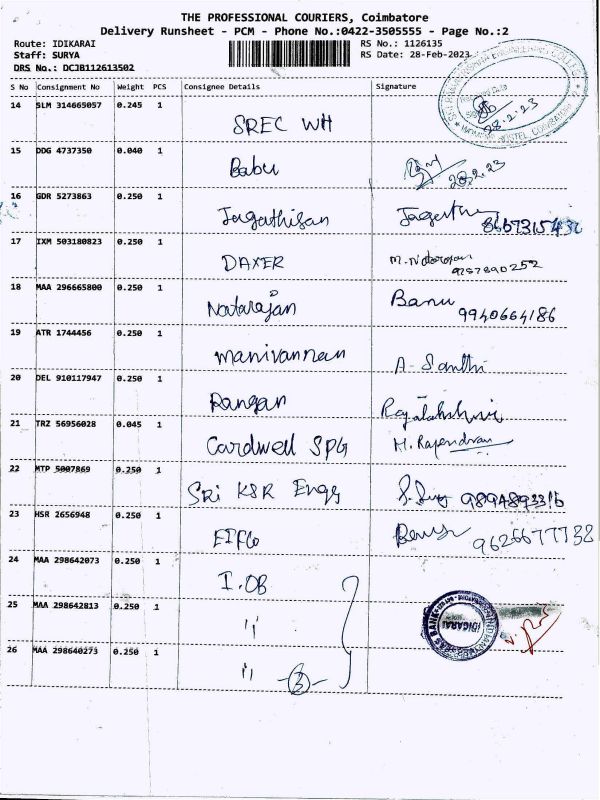 THE PROFESSIONAL COURIERS, Coimbatore
Delivery Runsheet - PCM - Phone No.:0422-3505555 - Page No.:2
Route: IDIKARAI
Staff: SURYA
DRS No.: DCJB112613502
RS No.: 1126135
RS Date: 28-Feb-2023
S No Consignment No Weight PCS Consignee Details Signature
14 SLM 314665057 0.245 1 SREC WH 28.2.23
15 DDG 4737350 0.040 1 Babu 28.2.23
16 GDR 5273863 0.250 1 Jagathisan
17 IXM 503180823 0.250 1 DAXER 9257890252
18 MAA 296665800 0.250 1 Natarajan Banu 9940664186
19 ATR 1744456 0.250 1 Manivannan A. Santhi
20 DEL 910117947 0.250 1 Rangan
21 TRZ 56956028 0.045 1 Cardwell SPG M. Rajendran
22 MTP 5007869 0.250 1 Sri KSR Engg 9894893316
23 HSR 2656948 0.250 1 9626677738
24 MAA 298642073 0.250 1 I.OB
25 MAA 298642813 0.250 1 "
26 MAA 298640273 0.250 1 " 3
IDIGARAI